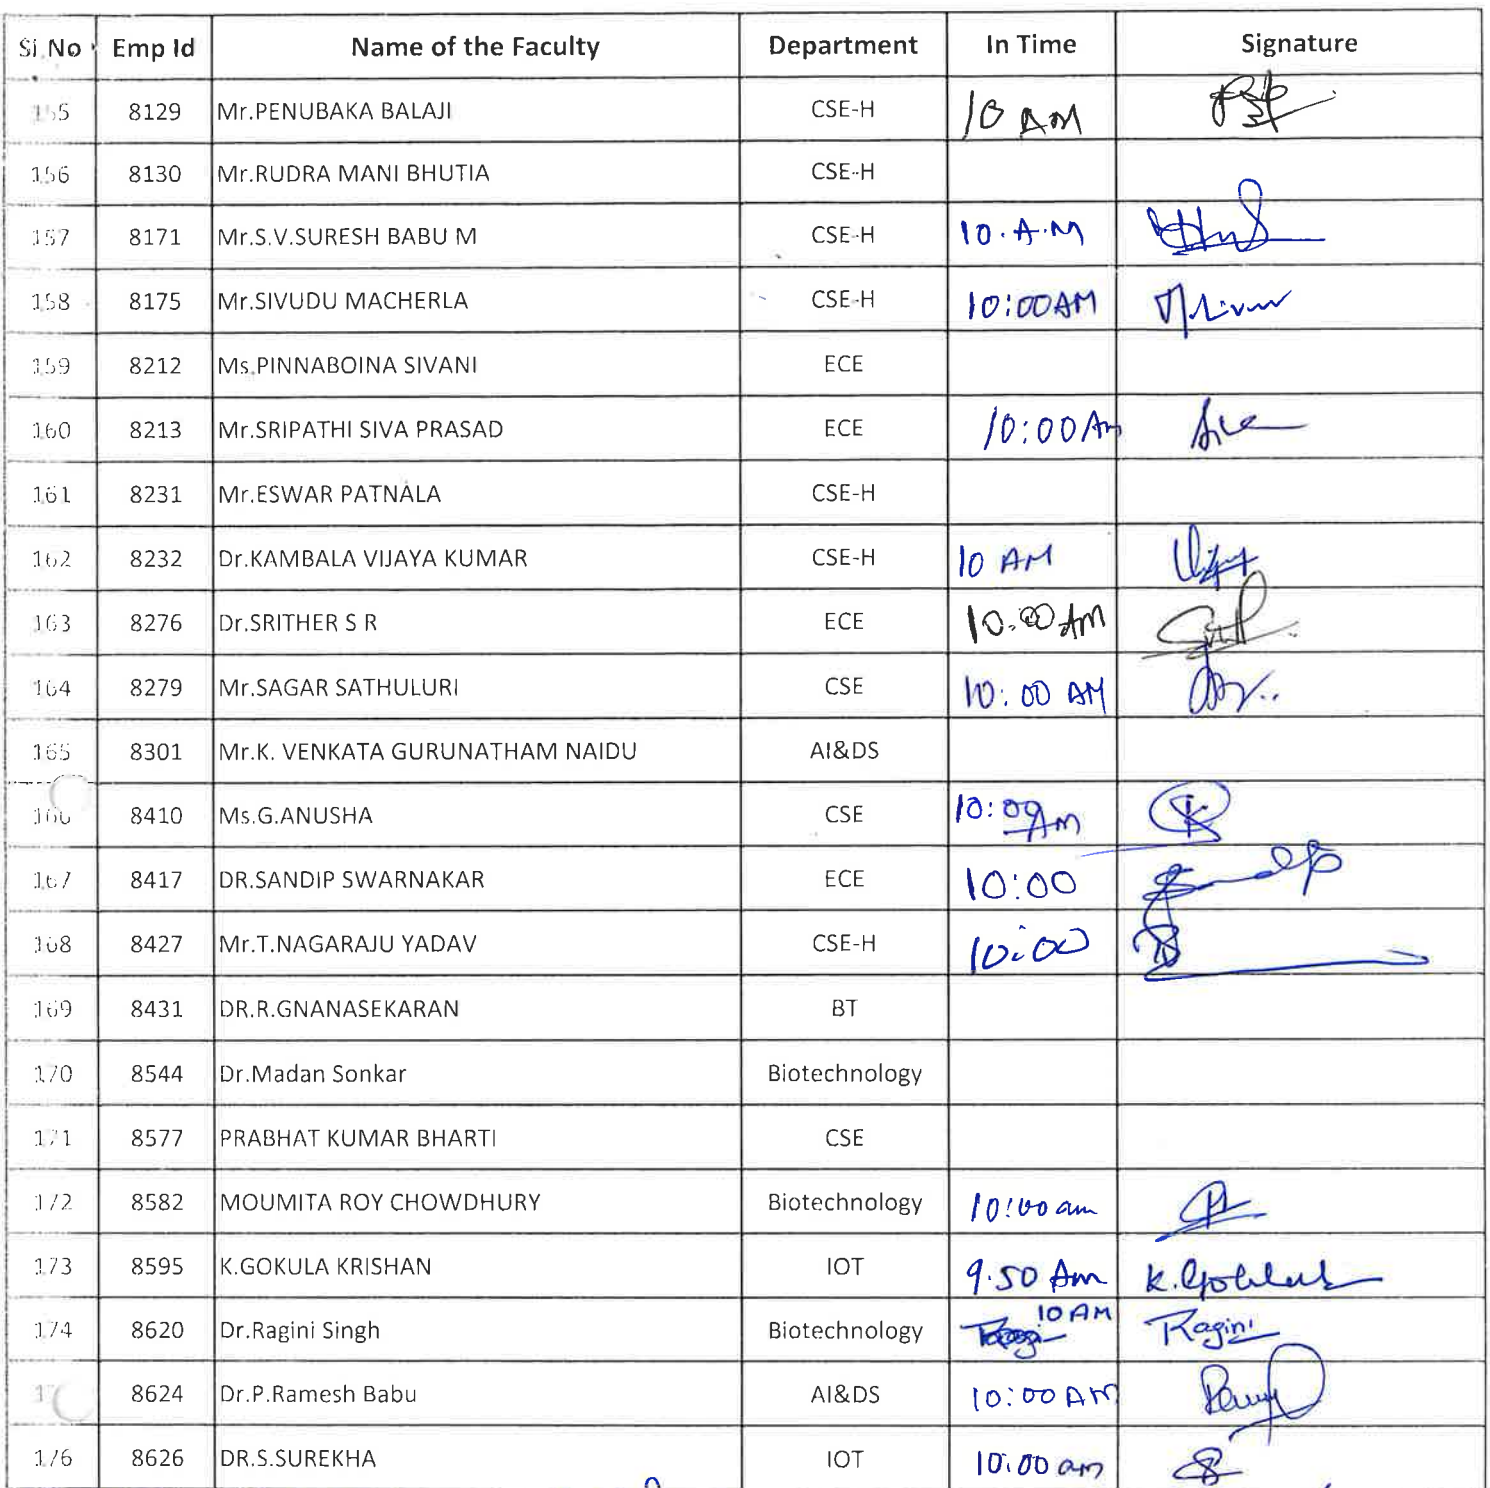 Sl.No Emp Id Name of the Faculty Department In Time Signature
155 8129 Mr.PENUBAKA BALAJI CSE-H 10 AM
156 8130 Mr.RUDRA MANI BHUTIA CSE-H
157 8171 Mr.S.V.SURESH BABU M CSE-H 10.A.M
158 8175 Mr.SIVUDU MACHERLA CSE-H 10:00AM
159 8212 Ms.PINNABOINA SIVANI ECE
160 8213 Mr.SRIPATHI SIVA PRASAD ECE 10:00Am
161 8231 Mr.ESWAR PATNALA CSE-H
162 8232 Dr.KAMBALA VIJAYA KUMAR CSE-H 10 AM
163 8276 Dr.SRITHER S R ECE 10.00 Am
164 8279 Mr.SAGAR SATHULURI CSE 10:00 AM
165 8301 Mr.K. VENKATA GURUNATHAM NAIDU AI&DS
166 8410 Ms.G.ANUSHA CSE 10:00 Am
167 8417 DR.SANDIP SWARNAKAR ECE 10:00
168 8427 Mr.T.NAGARAJU YADAV CSE-H 10:00
169 8431 DR.R.GNANASEKARAN BT
170 8544 Dr.Madan Sonkar Biotechnology
171 8577 PRABHAT KUMAR BHARTI CSE
172 8582 MOUMITA ROY CHOWDHURY Biotechnology 10:00 am
173 8595 K.GOKULA KRISHAN IOT 9.50 Am
174 8620 Dr.Ragini Singh Biotechnology 10 AM Ragini
8624 Dr.P.Ramesh Babu AI&DS 10:00 AM
176 8626 DR.S.SUREKHA IOT 10:00 am